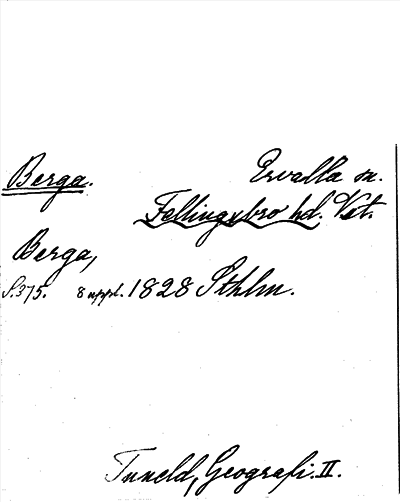 Berga. Ervalla sn.
Fellingsbro hd. Vstm.
Berga,
S. 375. 8 uppl. 1828 Sthlm.
Tuneld, Geografi. II.